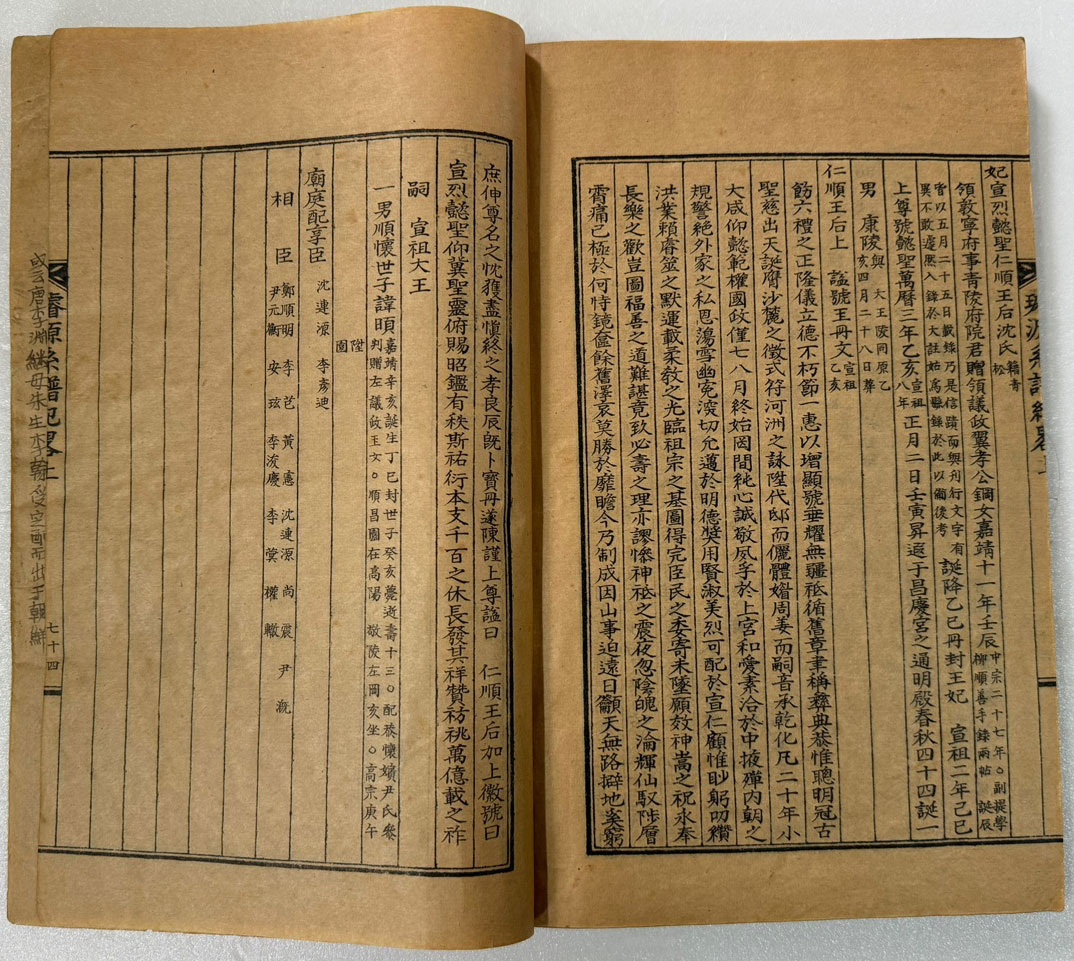 妃宣烈懿聖仁順王后沈氏籍靑松
領敦寧府事靑陵府院君贈領議政翼孝公鋼女嘉靖十一年壬辰中宗二十七年○副提學柳順善手錄兩帖誕辰
皆以五月二十五日載錄乃是信蹟而與刊行文字有異不敢遽然入錄於大註始爲懸錄於此以備後考誕降乙巳冊封王妃 宣祖二年己巳
上尊號懿聖萬曆三年乙亥宣祖八年正月二日壬寅昇遐于昌慶宮之通明殿春秋四十四誕一
男 康陵與 大王陵同原乙亥四月二十八日葬
仁順王后上 諡號玉冊文宣祖乙亥
飭六禮之正隆儀立德不朽節一惠以增顯號垂耀無疆祗循舊章聿稱彝典恭惟聰明冠古
聖慈出天誕膺沙麓之徵式符河洲之詠陞代邸而儷體媲周姜而嗣音承乾化凡二十年小
大咸仰懿範權國政僅七八月終始罔間純心誠敬夙孚於上宮和愛素洽於中掖殫內朝之
規警絶外家之私恩蕩雪幽寃深切允邁於明德獎用賢淑美烈可配於宣仁顧惟眇躬叨纘
洪業賴睿筮之默運載柔敎之光臨祖宗之基圖得完臣民之委寄未墜願效神嵩之祝永奉
長樂之歡豈圖福善之道難諶竟致必壽之理亦謬慘神祗之震夜忽陰魄之淪輝仙馭陟層
霄痛已極於何恃鏡奩餘舊澤哀莫勝於靡瞻今乃制成因山事迫遠日籲天無路擗地奚窮
庶伸尊名之忱獲盡愼終之孝良辰旣卜寶冊遂陳謹上尊諡曰 仁順王后加上徽號曰
宣烈懿聖仰冀聖靈俯賜昭鑑有秩斯祐衍本支千百之休長發其祥贊祊祧萬億載之祚
嗣 宣祖大王
一男順懷世子諱暊嘉靖辛亥誕生丁巳封世子癸亥薨逝壽十三○配恭懷嬪尹氏參判贈左議政玉女○順昌園在高陽 敬陵左岡亥坐○高宗庚午
陞園
廟庭配享臣 沈連源 李彦迪
相臣 鄭順明 李芑 黃憲 沈連源 尙震 尹漑
尹元衡 安玹 李浚慶 李蓂 權轍
璿源系譜紀畧
七十四